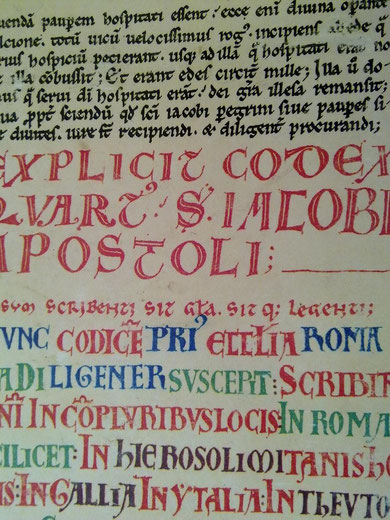 uendā pauperem hospitati essent: ecce enī diuina operante
ulcione. totū uicū uelocissimus rog᷒. incipiens ab ede q
rius hospiciū pecierant. usq; ad illā q̄ hospitati erant
illa cōbussit; Et erant edes circit mille; Illa ū do
us q̄ serui dī hospitati erāt. dei gīa illesa remansit;
ua ppt̄ sciendū qd̄ scī iacobi peregrini siue pauperes si
e diuites. iure st̄ recipiendi. & diligent̄ procurandi;
EXPLICIT CODEX
QVART᷒. S. IACOBI
APOSTOLI;
SVM SCRIBENTI SIT GLA. SIT Q; LEGENTI;
VNC CODICĒ PRI᷒ ECCLĪA ROMA
A DILIGENER SUSCEPIT: SCRIBIT
NĪ IN CŌPLURIBUS LOCIS: IN ROMA
CILICET: IN HIEROSOLIMITANIS HO
IS: IN GALLIA IN YTALIA: IN THEUTO